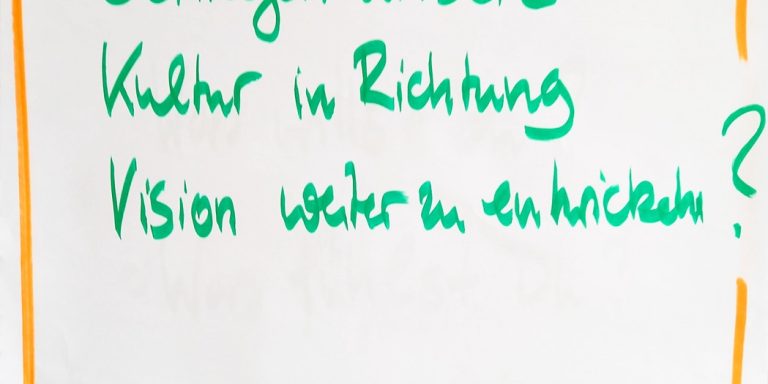 unsere
Kultur in Richtung
Vision weiter zu entwickeln ?